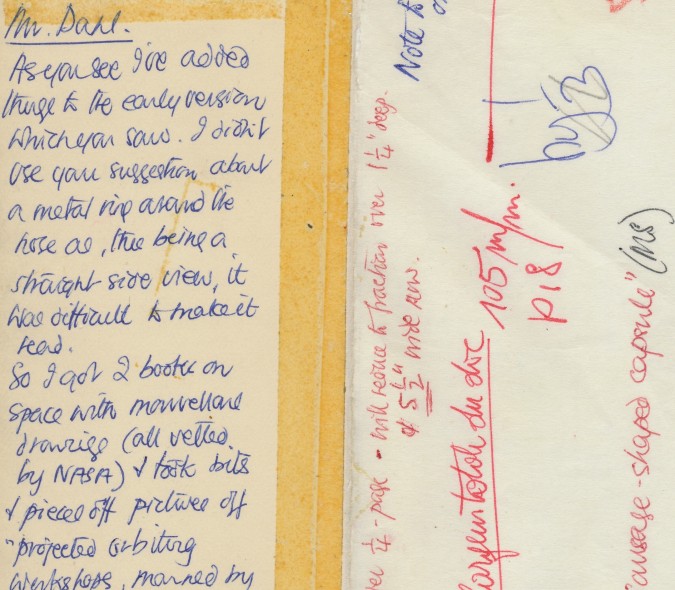 Mr. Dahl.
As you see I've added
things to the early version
which you saw. I didn't
use your suggestion about
a metal ring around the
nose as, this being a
straight side view, it
was difficult to make it
read.
So I got 2 books on
space with marvellous
drawings (all vetted
by NASA) & took bits
& pieces off pictures off
"projected orbiting
workshops, manned by
Note to
by
105 m/m.
p18
¼-page - will reduce to fraction over 1¼" deep.
& 5½" wide now.
sausage-shaped capsule" (MS)